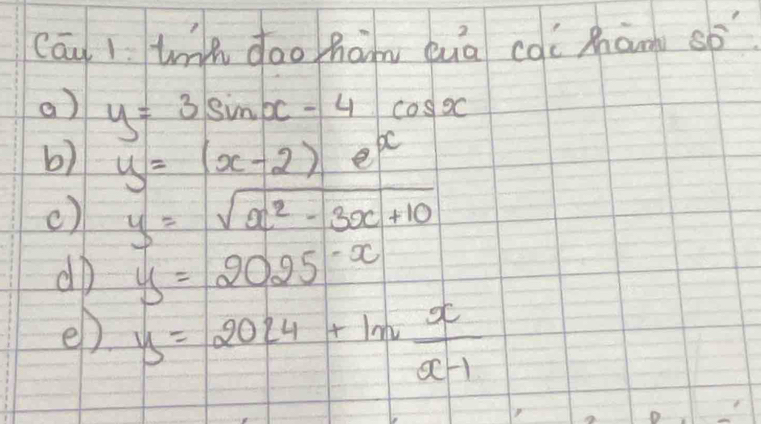 Câu 1: tính đạo hàm của các hàm số
a) y = 3 sin x - 4 cos x
b) y = (x - 2) e^x
c) y = √(x² - 3x + 10)
d) y = 2025^-x
e) y = 2024 + ln x/(x-1)